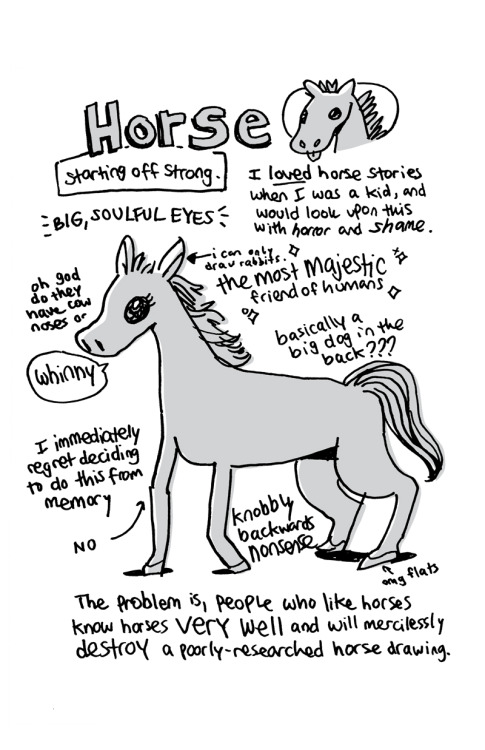 Horse
starting off strong.
I loved horse stories
when I was a kid, and
would look upon this
with horror and shame.
BIG, SOULFUL EYES
i can only
draw rabbits.
the most majestic
friend of humans
oh god
do they
have cow
noses or
basically a
big dog in the
back???
whinny
I immediately
regret deciding
to do this from
memory
NO
knobbly
backwards
nonsense
omg flats
The problem is, people who like horses
know horses very well and will mercilessly
destroy a poorly-researched horse drawing.